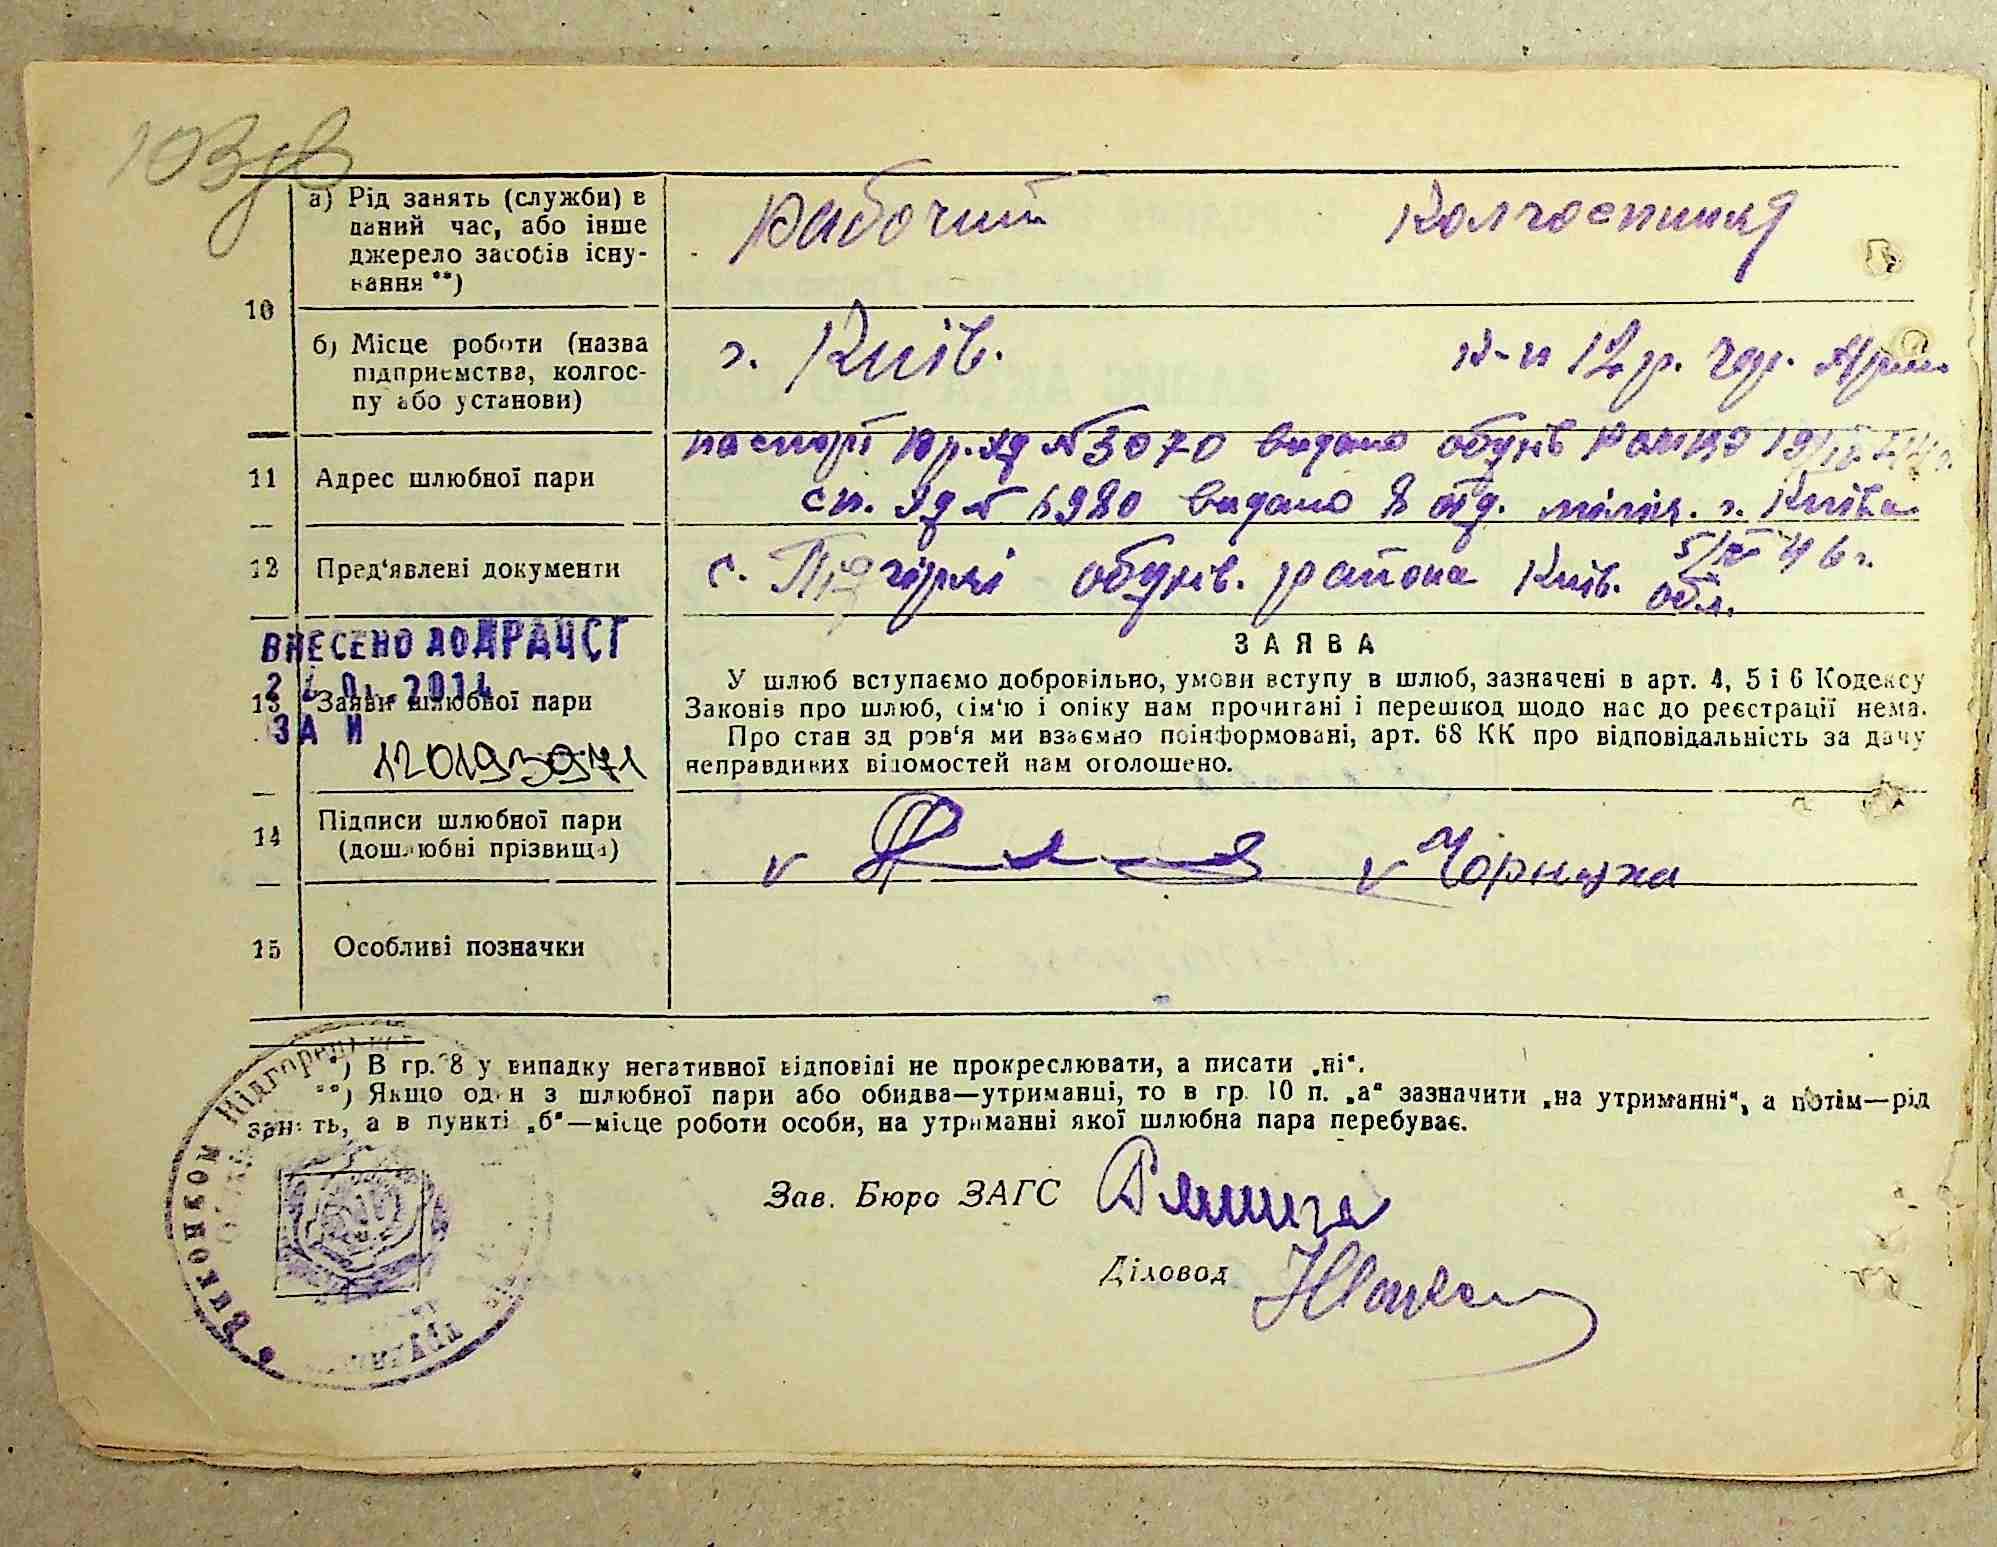 а) Рід занять (служби) в
даний час, або інше
джерело засобів існу-
вання **)
Рабочий
Колгоспниця
10
б) Місце роботи (назва
підприємства, колгос-
пу або установи)
г. Київ.
к-п 12 р. Чер. Арм.
11
Адрес шлюбної пари
паспорт № 3070 видано обухів
№ 6980 видано 8 отд. міліц. г. Київа
5/IV 46 г.
12
Пред'явлені документи
с. Підгірці обухів. района Київ. обл.
ВНЕСЕНО ДО ДРАЦСГ
13
Заяви шлюбної пари
ЗА И
120193971
ЗАЯВА
У шлюб вступаємо добровільно, умови вступу в шлюб, зазначені в арт. 4, 5 і 6 Кодексу
Законів про шлюб, сім'ю і опіку нам прочитані і перешкод щодо нас до реєстрації нема.
Про стан здоров'я ми взаємно поінформовані, арт. 68 КК про відповідальність за дачу
неправдивих відомостей нам оголошено.
14
Підписи шлюбної пари
(дошлюбні прізвища)
v
v Чорнуха
15
Особливі позначки
*) В гр. 8 у випадку негативної відповіді не прокреслювати, а писати „ні“.
**) Якщо один з шлюбної пари або обидва—утриманці, то в гр. 10 п. „а“ зазначити „на утриманні“, а потім—рід
занять, а в пункті „б“—місце роботи особи, на утриманні якої шлюбна пара перебуває.
Виконком Підгорец
Зав. Бюро ЗАГС
Діловод